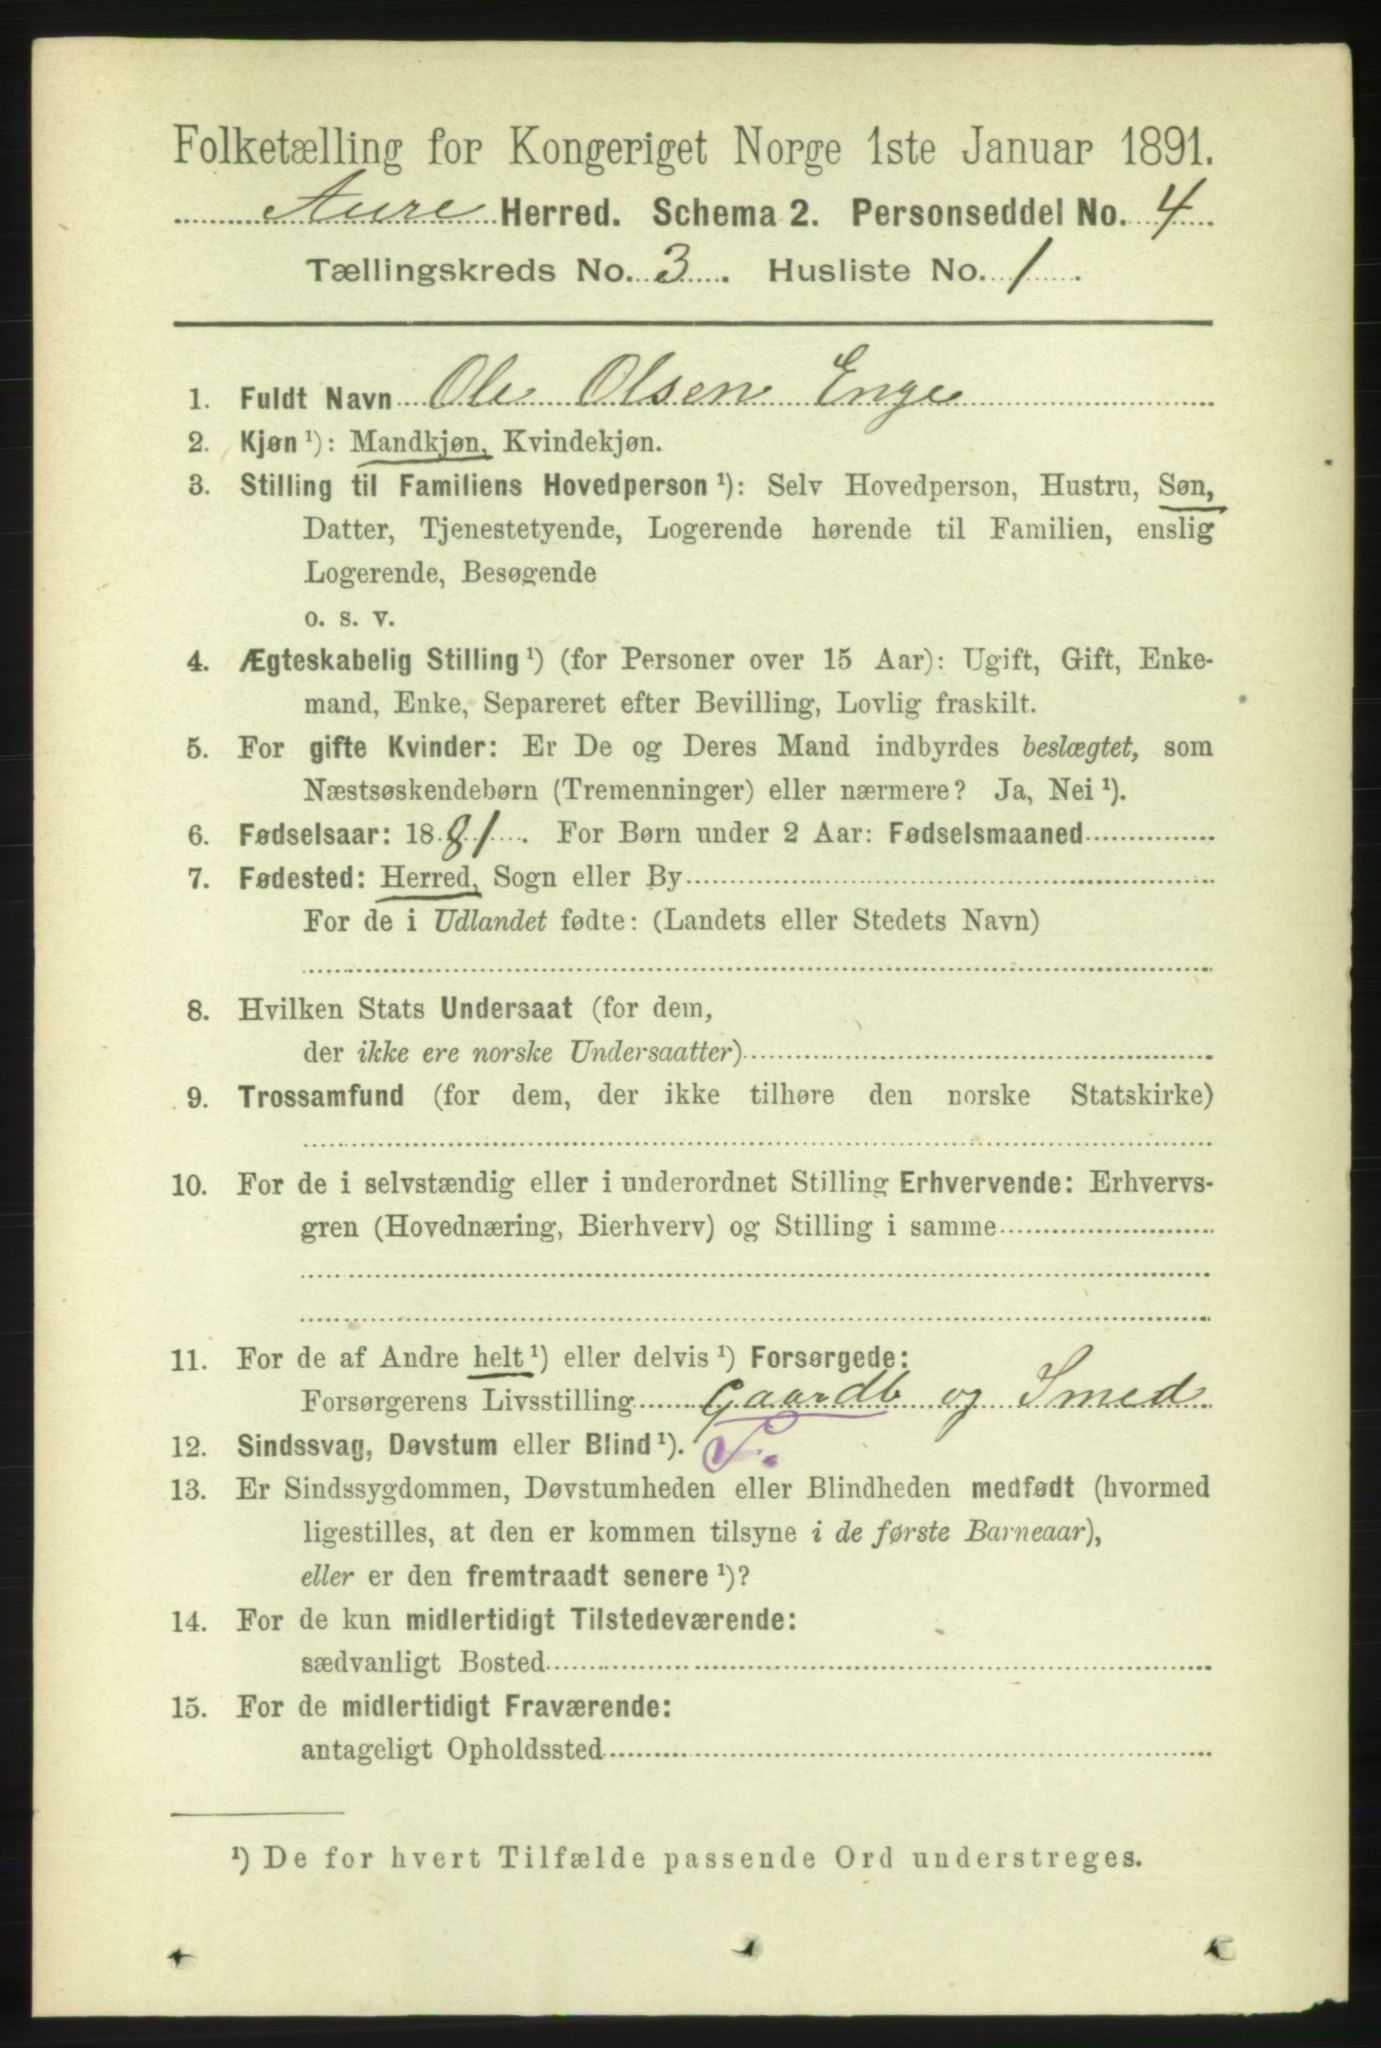 Folketælling for Kongeriget Norge 1ste Januar 1891.
Aure Herred. Schema 2. Personseddel No. 4
Tællingskreds No. 3. Husliste No. 1.
1. Fuldt Navn Ole Olsen Enge
2. Kjøn ¹): Mandkjøn, Kvindekjøn.
3. Stilling til Familiens Hovedperson ¹): Selv Hovedperson, Hustru, Søn,
Datter, Tjenestetyende, Logerende hørende til Familien, enslig
Logerende, Besøgende
o. s. v.
4. Ægteskabelig Stilling ¹) (for Personer over 15 Aar): Ugift, Gift, Enke-
mand, Enke, Separeret efter Bevilling, Lovlig fraskilt.
5. For gifte Kvinder: Er De og Deres Mand indbyrdes beslægtet, som
Næstsøskendebørn (Tremenninger) eller nærmere? Ja, Nei ¹).
6. Fødselsaar: 1881. For Børn under 2 Aar: Fødselsmaaned
7. Fødested: Herred, Sogn eller By
For de i Udlandet fødte: (Landets eller Stedets Navn)
8. Hvilken Stats Undersaat (for dem,
der ikke ere norske Undersaatter)
9. Trossamfund (for dem, der ikke tilhøre den norske Statskirke)
10. For de i selvstændig eller i underordnet Stilling Erhvervende: Erhvervs-
gren (Hovednæring, Bierhverv) og Stilling i samme
11. For de af Andre helt ¹) eller delvis ¹) Forsørgede:
Forsørgerens Livsstilling Gaardb og Smed
12. Sindssvag, Døvstum eller Blind ¹). F.
13. Er Sindssygdommen, Døvstumheden eller Blindheden medfødt (hvormed
ligestilles, at den er kommen tilsyne i de første Barneaar),
eller er den fremtraadt senere ¹)?
14. For de kun midlertidigt Tilstedeværende:
sædvanligt Bosted
15. For de midlertidigt Fraværende:
antageligt Opholdssted
¹) De for hvert Tilfælde passende Ord understreges.